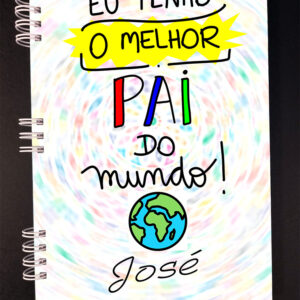 EU TENHO
O MELHOR
PAI
DO
mundo!
José